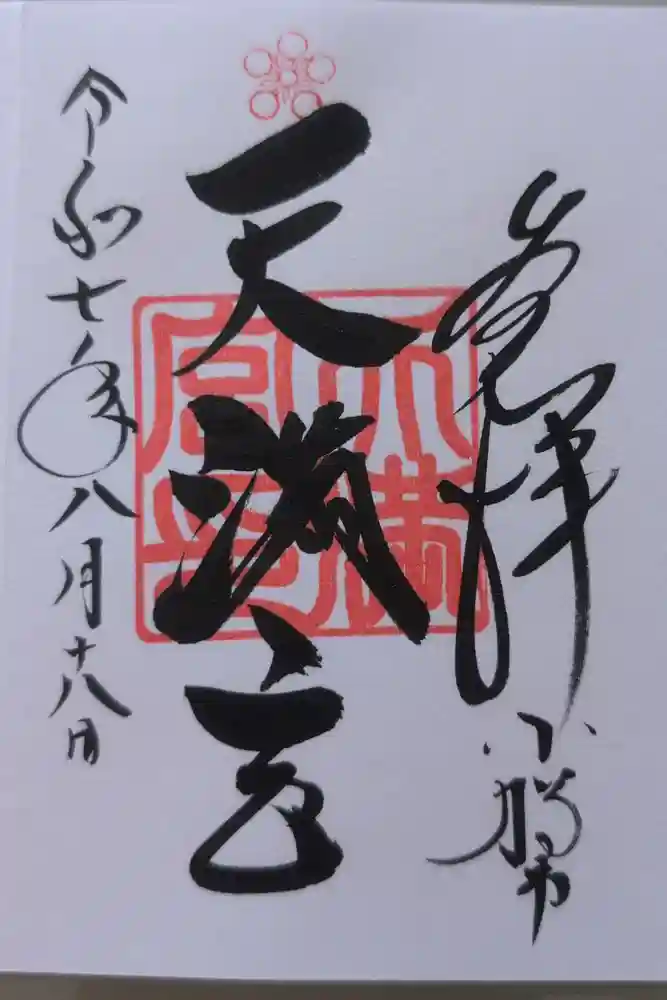 奉拝
小幡
天満宮
令和七年八月十八日
天満宮印